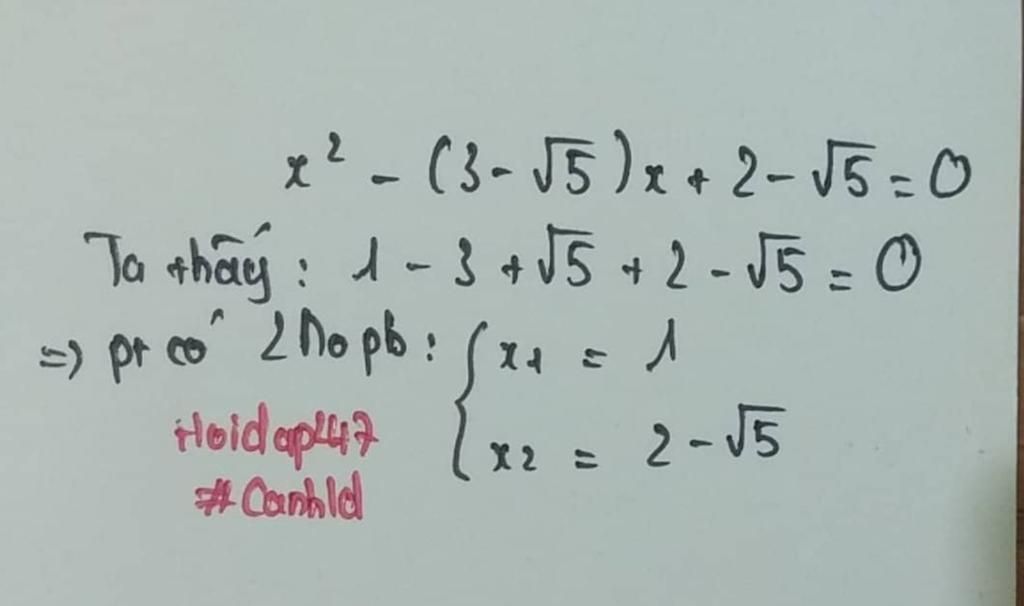 x² - (3-√5)x + 2-√5 = 0
Ta thấy: 1 - 3 + √5 + 2 - √5 = 0
=> pt có 2 no pb: { x1 = 1
x2 = 2-√5
Hoidap247
#Canhld